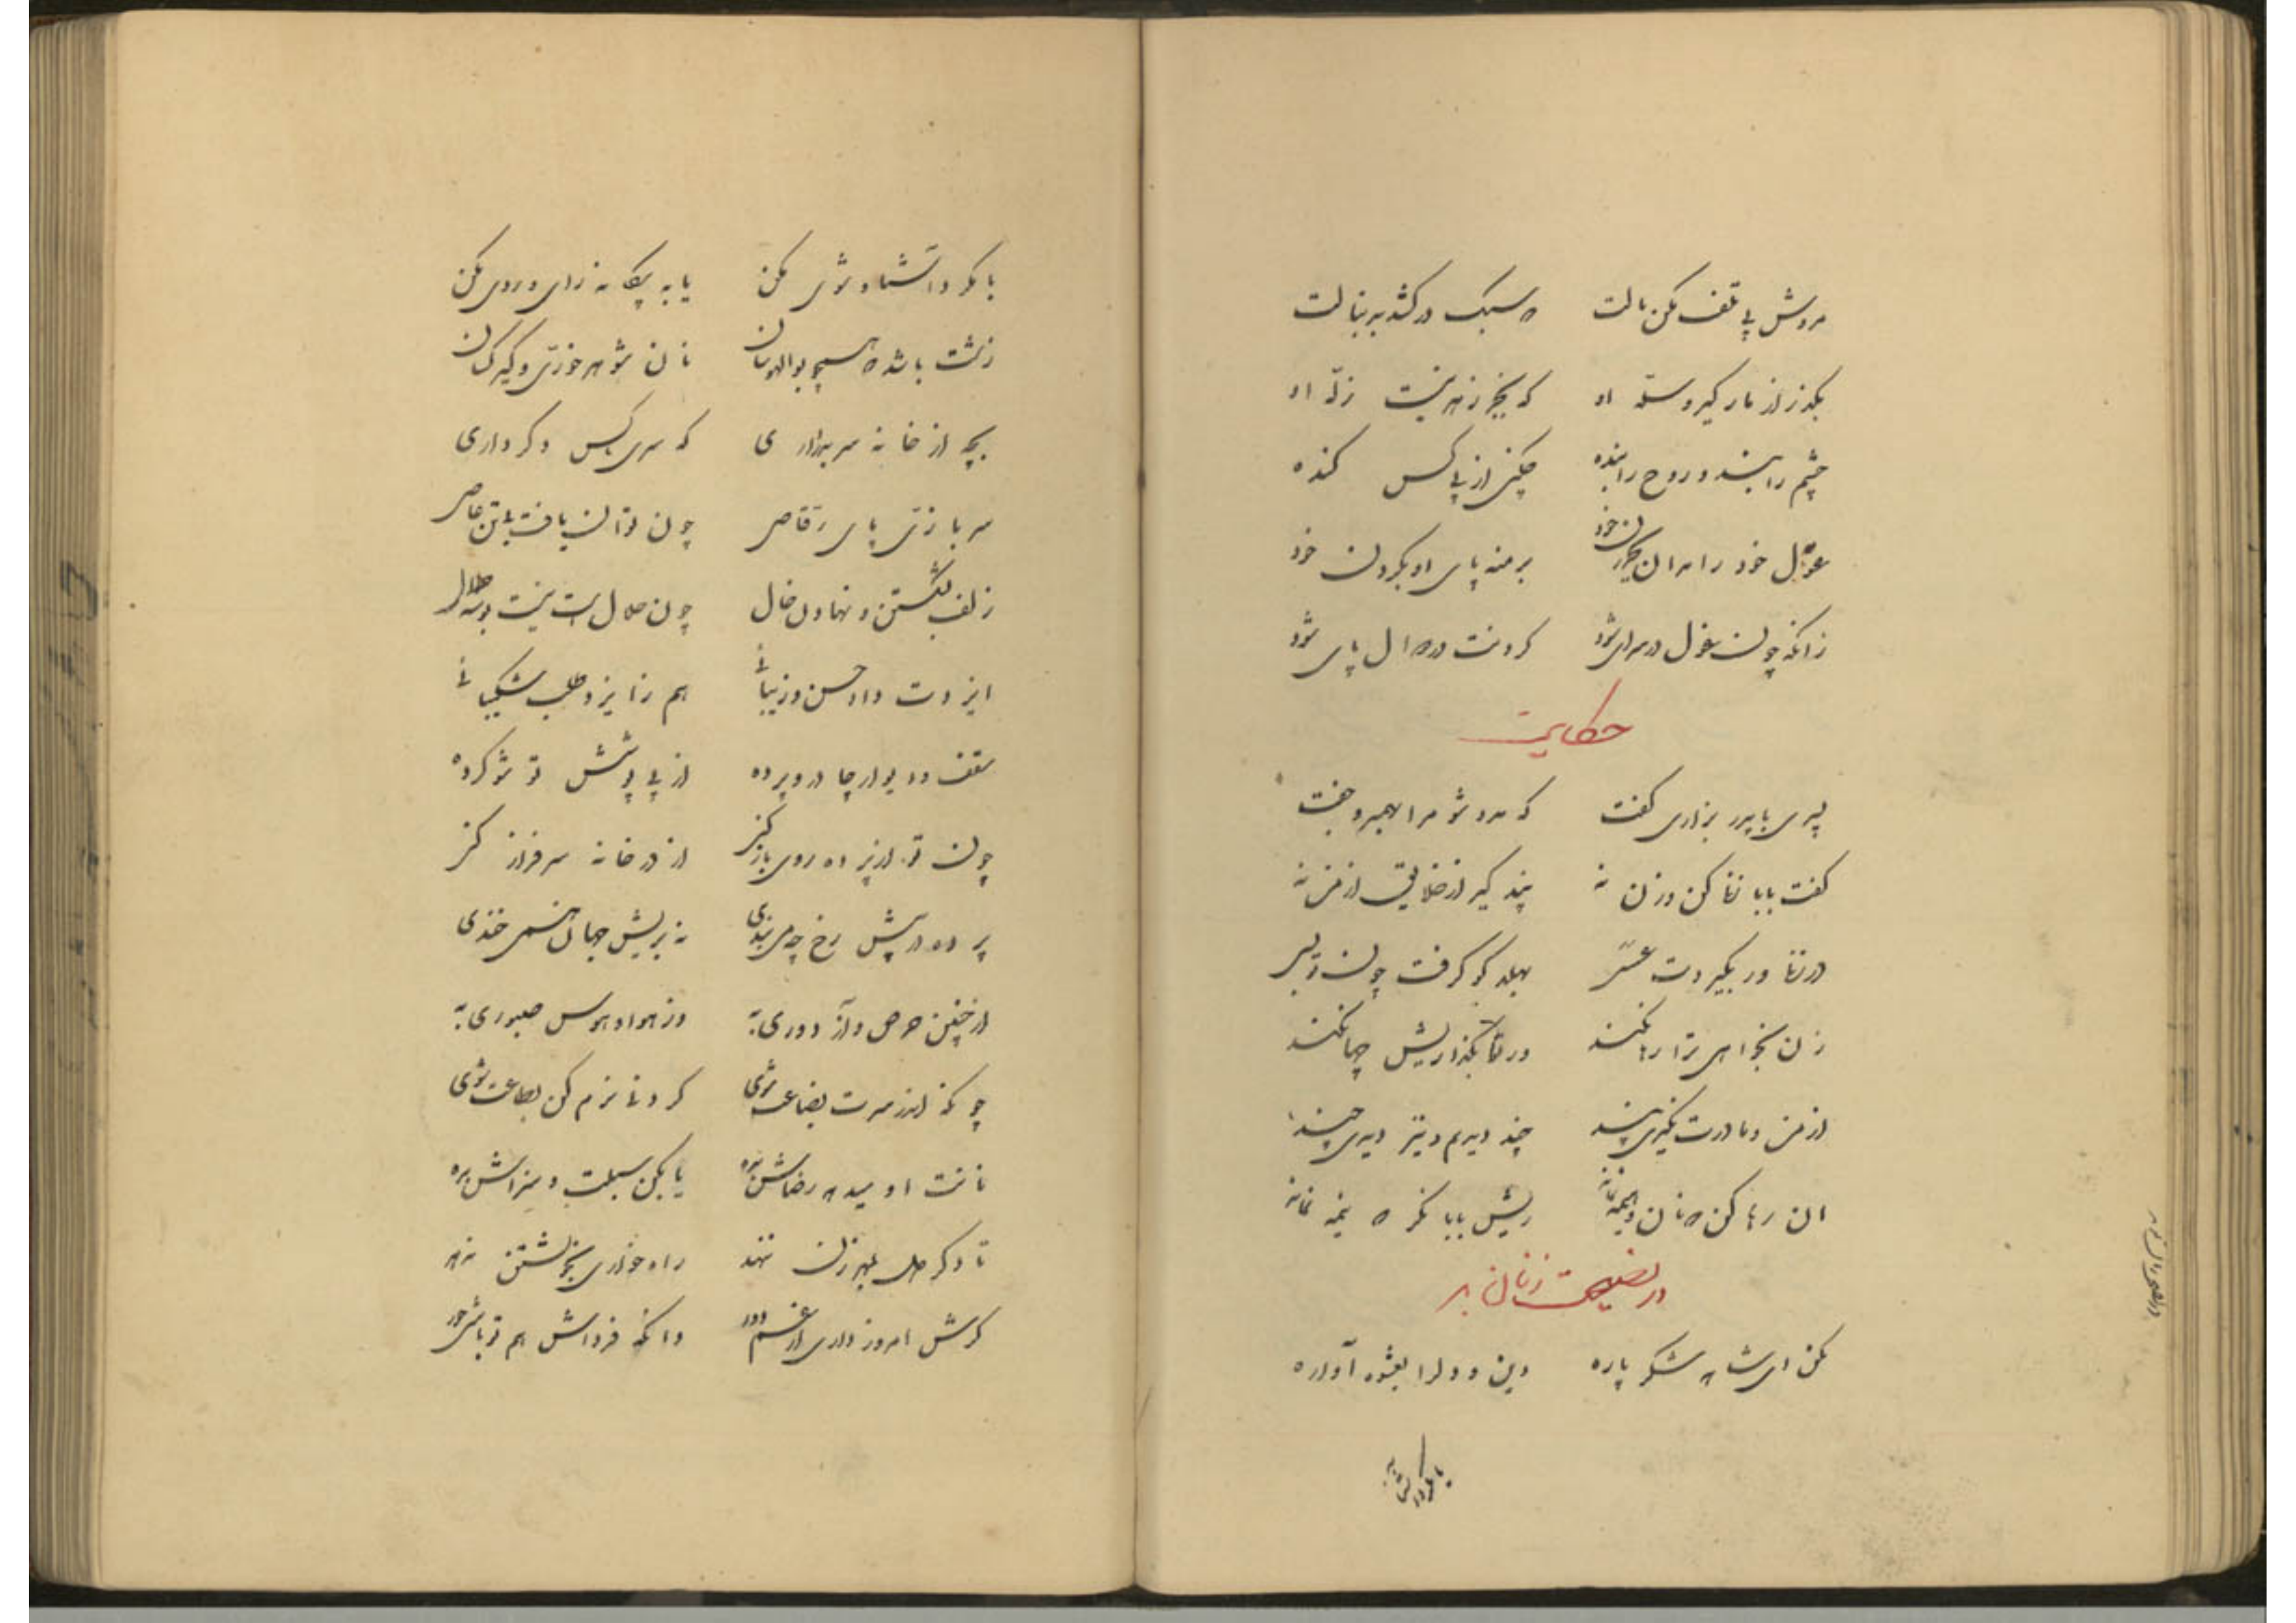 مروش پی تلف مکن مالت که سبک درکشد به بنالت
بگذر از مار گیر و سله او که بجز زهر نیست زله او
چشم را بند و روح را بنده چکنی از پی کس کنده
غول خود را مران بگردن خود بر منه پای او بگردن خود
زانکه چون غول در سرای شود گردنت در دوال پای شود
حکایت
پسری با پدر بزاری گفت که مرد شو مرا بهمره جفت
گفت بابا زنا کن و زن نه پند گیر از خلایق از من نه
در زنا ور بگیردت عسسی بهلد کو گرفت چون تو بسی
زن بخواهی ترا رها نکند ور تو بگذاریش چها نکند
از من و مادرت نگیری پند چند دیدم و نیز دیدی چند
آن رها کن که نان و هیمه نماند ریش بابا نگر که نیمه نماند
در نصیحت زنان بد
مکن ای شاهد شکر پاره دین و دل را بعشوه آواره
با مکرد آشنا
با مکرد آشنا و شوی مکن یا به بیگانه رای و روی مکن
زشت باشد که همچو بوالهوسان نان شوهر خوری و کیر کسان
بچه از خانه سر بدر آری که سری کس دگر داری
سر بازی پای رقاص چون توان یافت با تن خاص
زلف بشکستن و نهادن خال چون حلال است نیست بوسه حلال
ایزدت داد حسن و زیبائی هم ز ایزد طلب شکیبائی
سقف و دیوار و چادر و پرده از پی پوشش تو شو کرده
چون تو از پرده روی باز کنی از در خانه سر فراز کنی
پرده در پیش رخ چه می‌بندی نه بریش جهان همی خندی
از چنین حرص و آز دوری به وز هوا و هوس صبوری به
چونکه اندر سرت بضاعت شوی گردنت نرم کن بطاعت شوی
نانت او میدهد رضاش بده یا بکن سبلت و سزاش بده
تا دگر دل بمهر زن ننهد راه خواری بخویشتن ندهد
گرش امروز داری از غم دور دانکه فرداش هم تو باشی حور